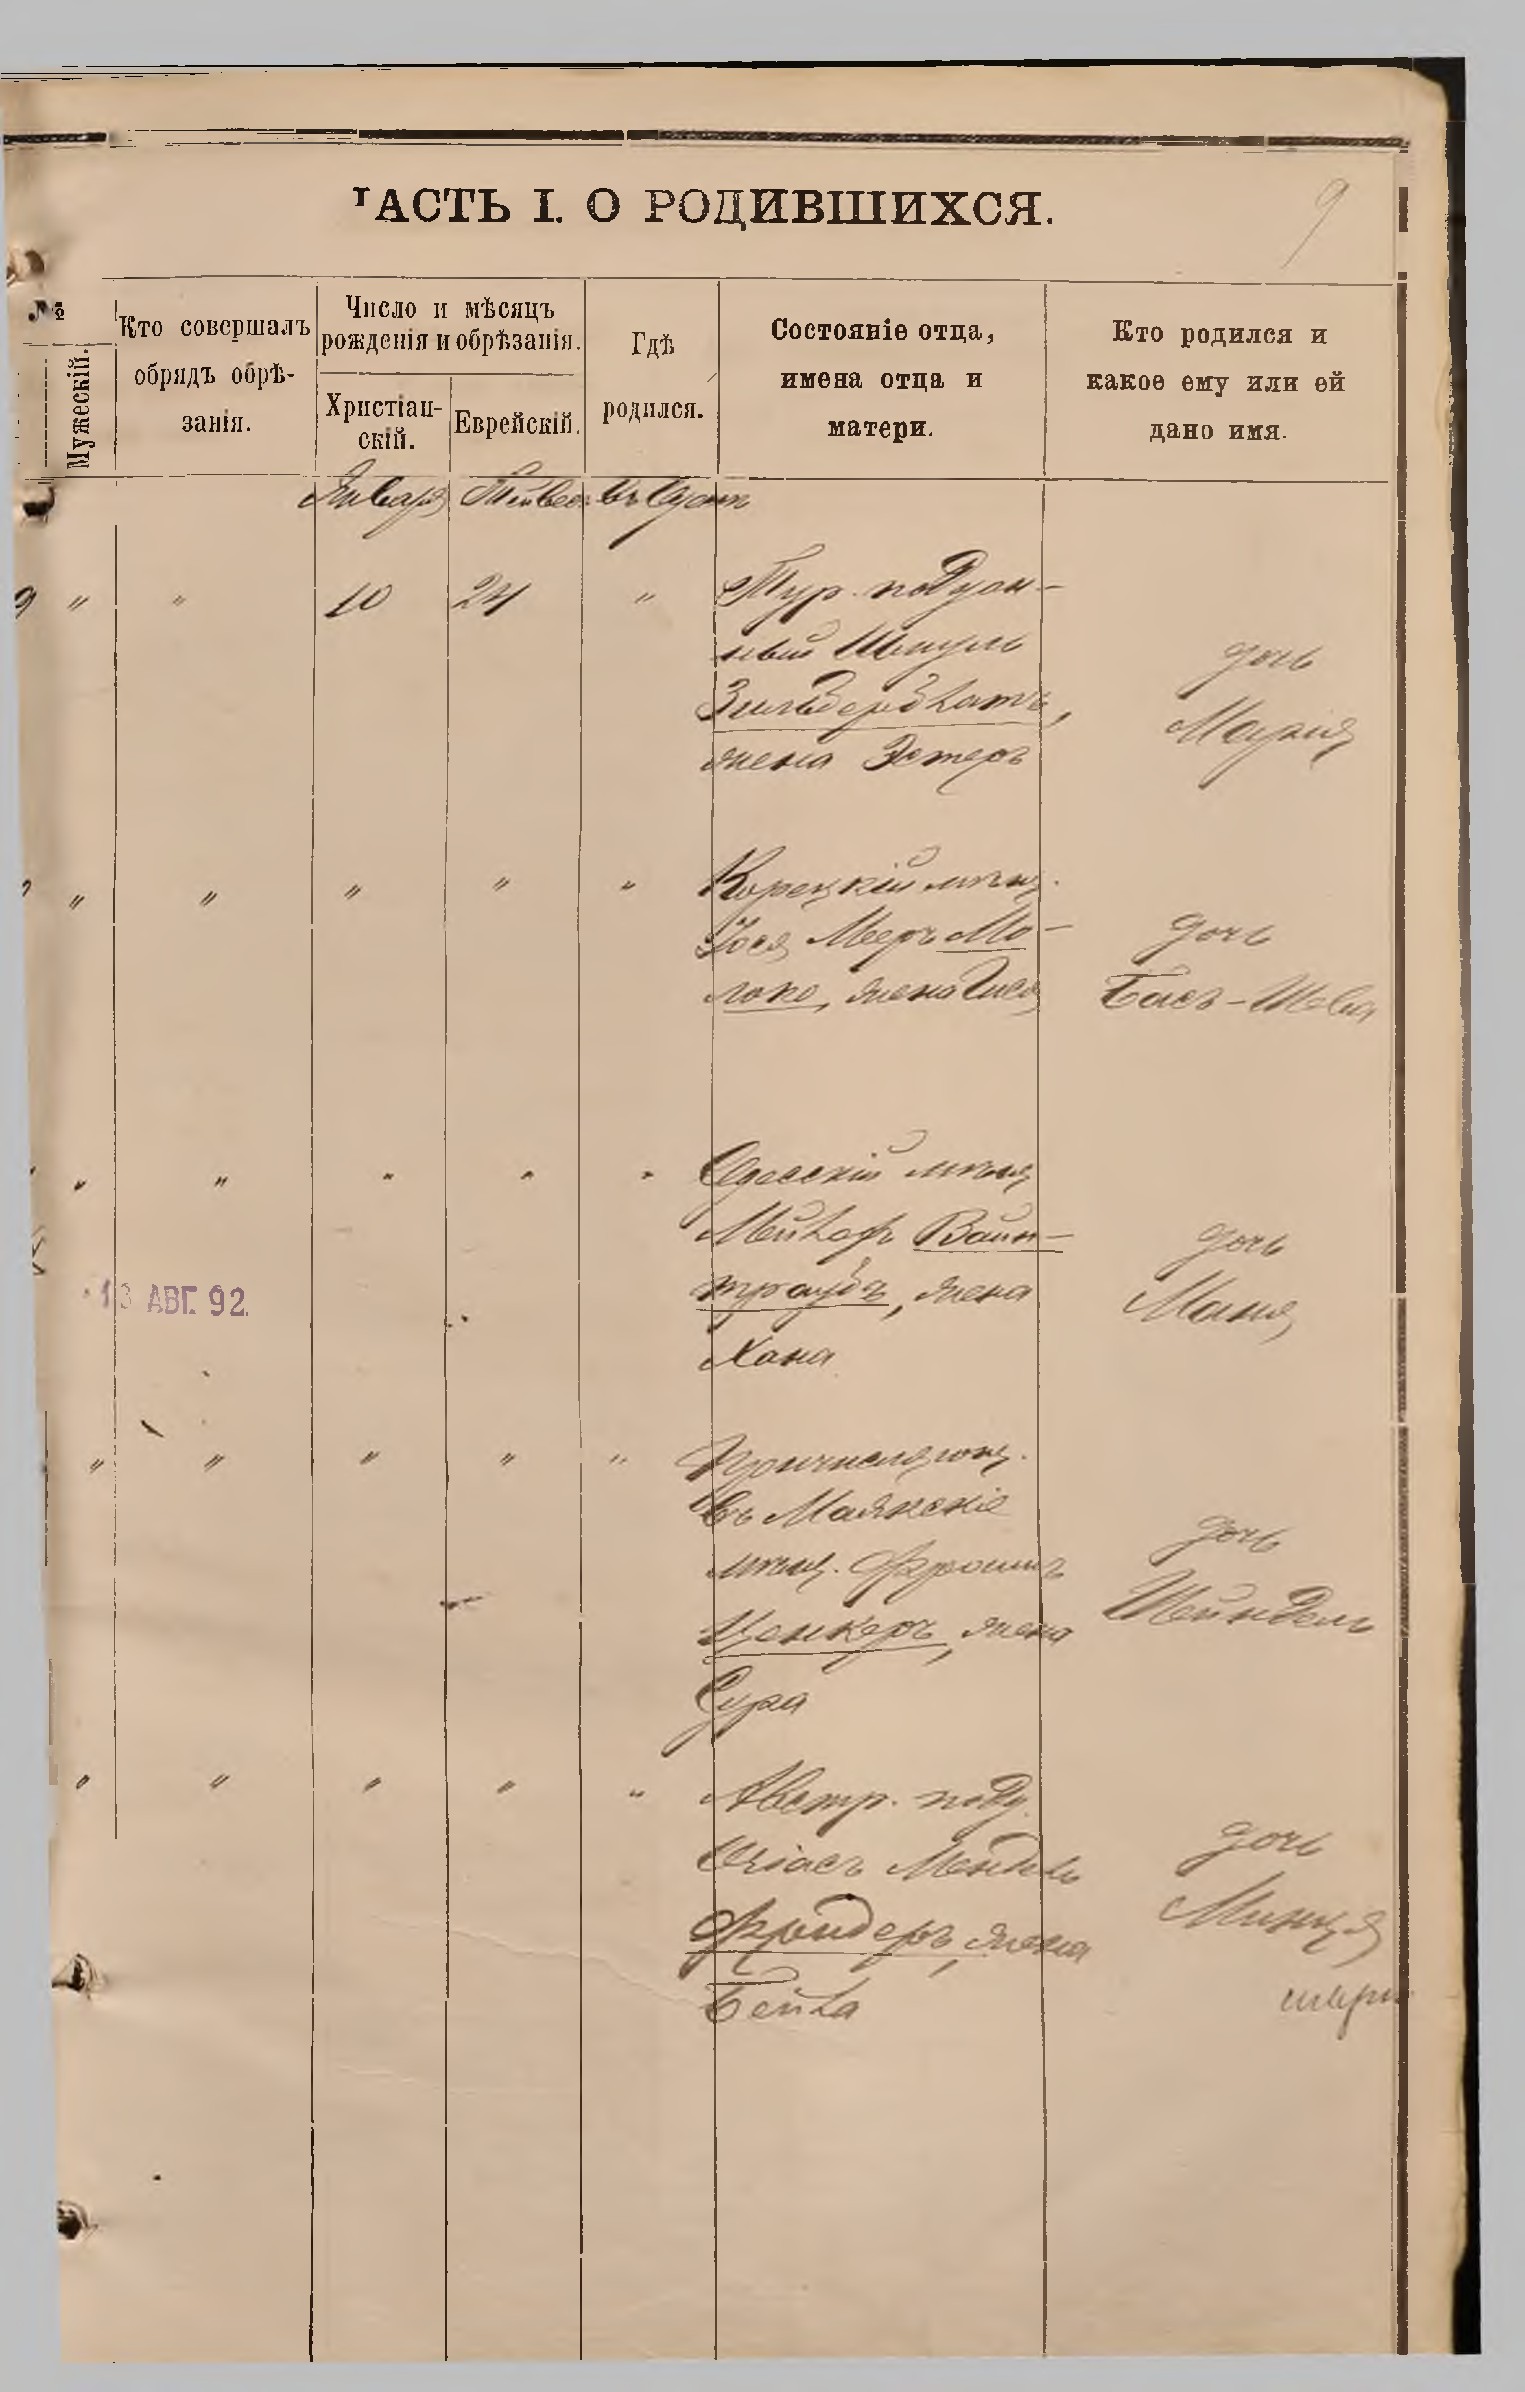 ЧАСТЬ I. О РОДИВШИХСЯ.
9
№
Мужескій.
Кто совершалъ
обрядъ обрѣ-
занія.
Число и мѣсяцъ
рожденія и обрѣзанія.
Христіан-
скій.
Еврейскій.
Гдѣ
родился.
Состояніе отца,
имена отца и
матери.
Кто родился и
какое ему или ей
дано имя.
Января
9 " " 10 24 "
Тур. поддан-
ный Шмуль
Зильберблатъ,
жена Эстеръ
дочь
Марія
" " " " "
Корецкій мѣщ.
Іося Мееръ Мо-
локо, жена Гися
дочь
Бася-Шева
" " " " "
Одесскій мѣщ
Вайн-
траубъ, жена
Хана
дочь
Маня
13 АВГ. 92.
" " " " "
Причисляющ.
въ Маякскіе
мѣщ. Фроимъ
Ценкеръ, жена
Сура
дочь
Шейндель
" " " " "
Австр. подд.
Мендель
жена
Бейла
дочь
Минця